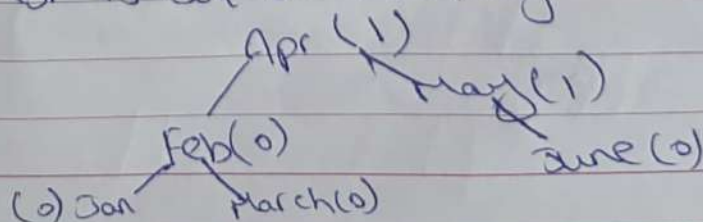 Apr (1)
May (1)
Feb (0)
June (0)
(0) Jan
March (0)